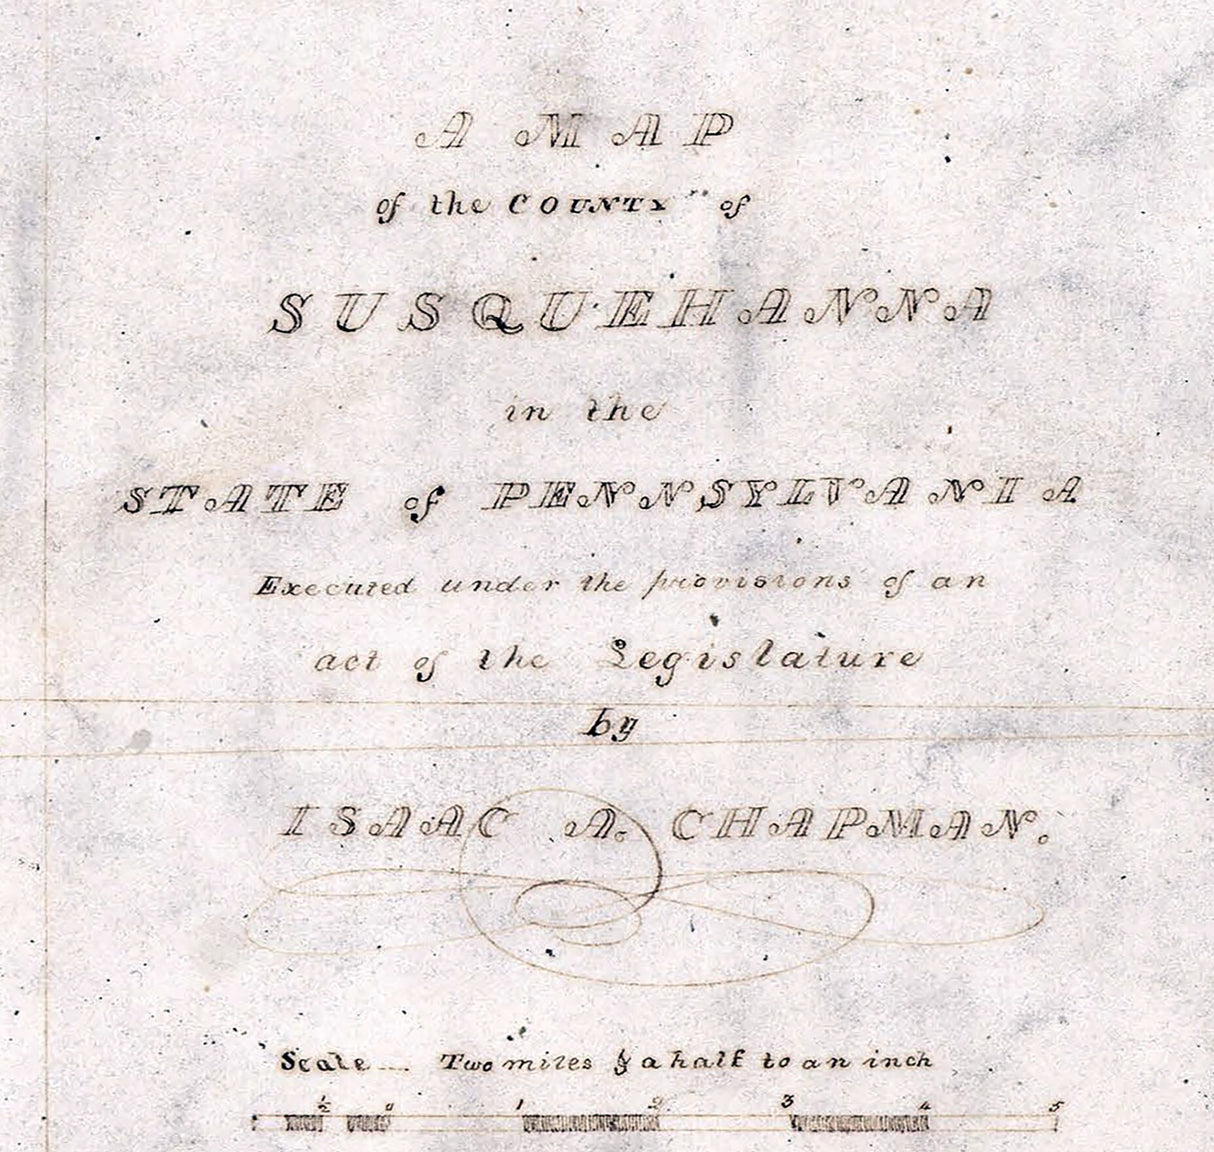 A MAP
of the COUNTY of
SUSQUEHANNA
in the
STATE of PENNSYLVANIA
Executed under the provisions of an
act of the Legislature
by
ISAAC A. CHAPMAN.
Scale... Two miles & a half to an inch
½ 0 1 2 3 4 5